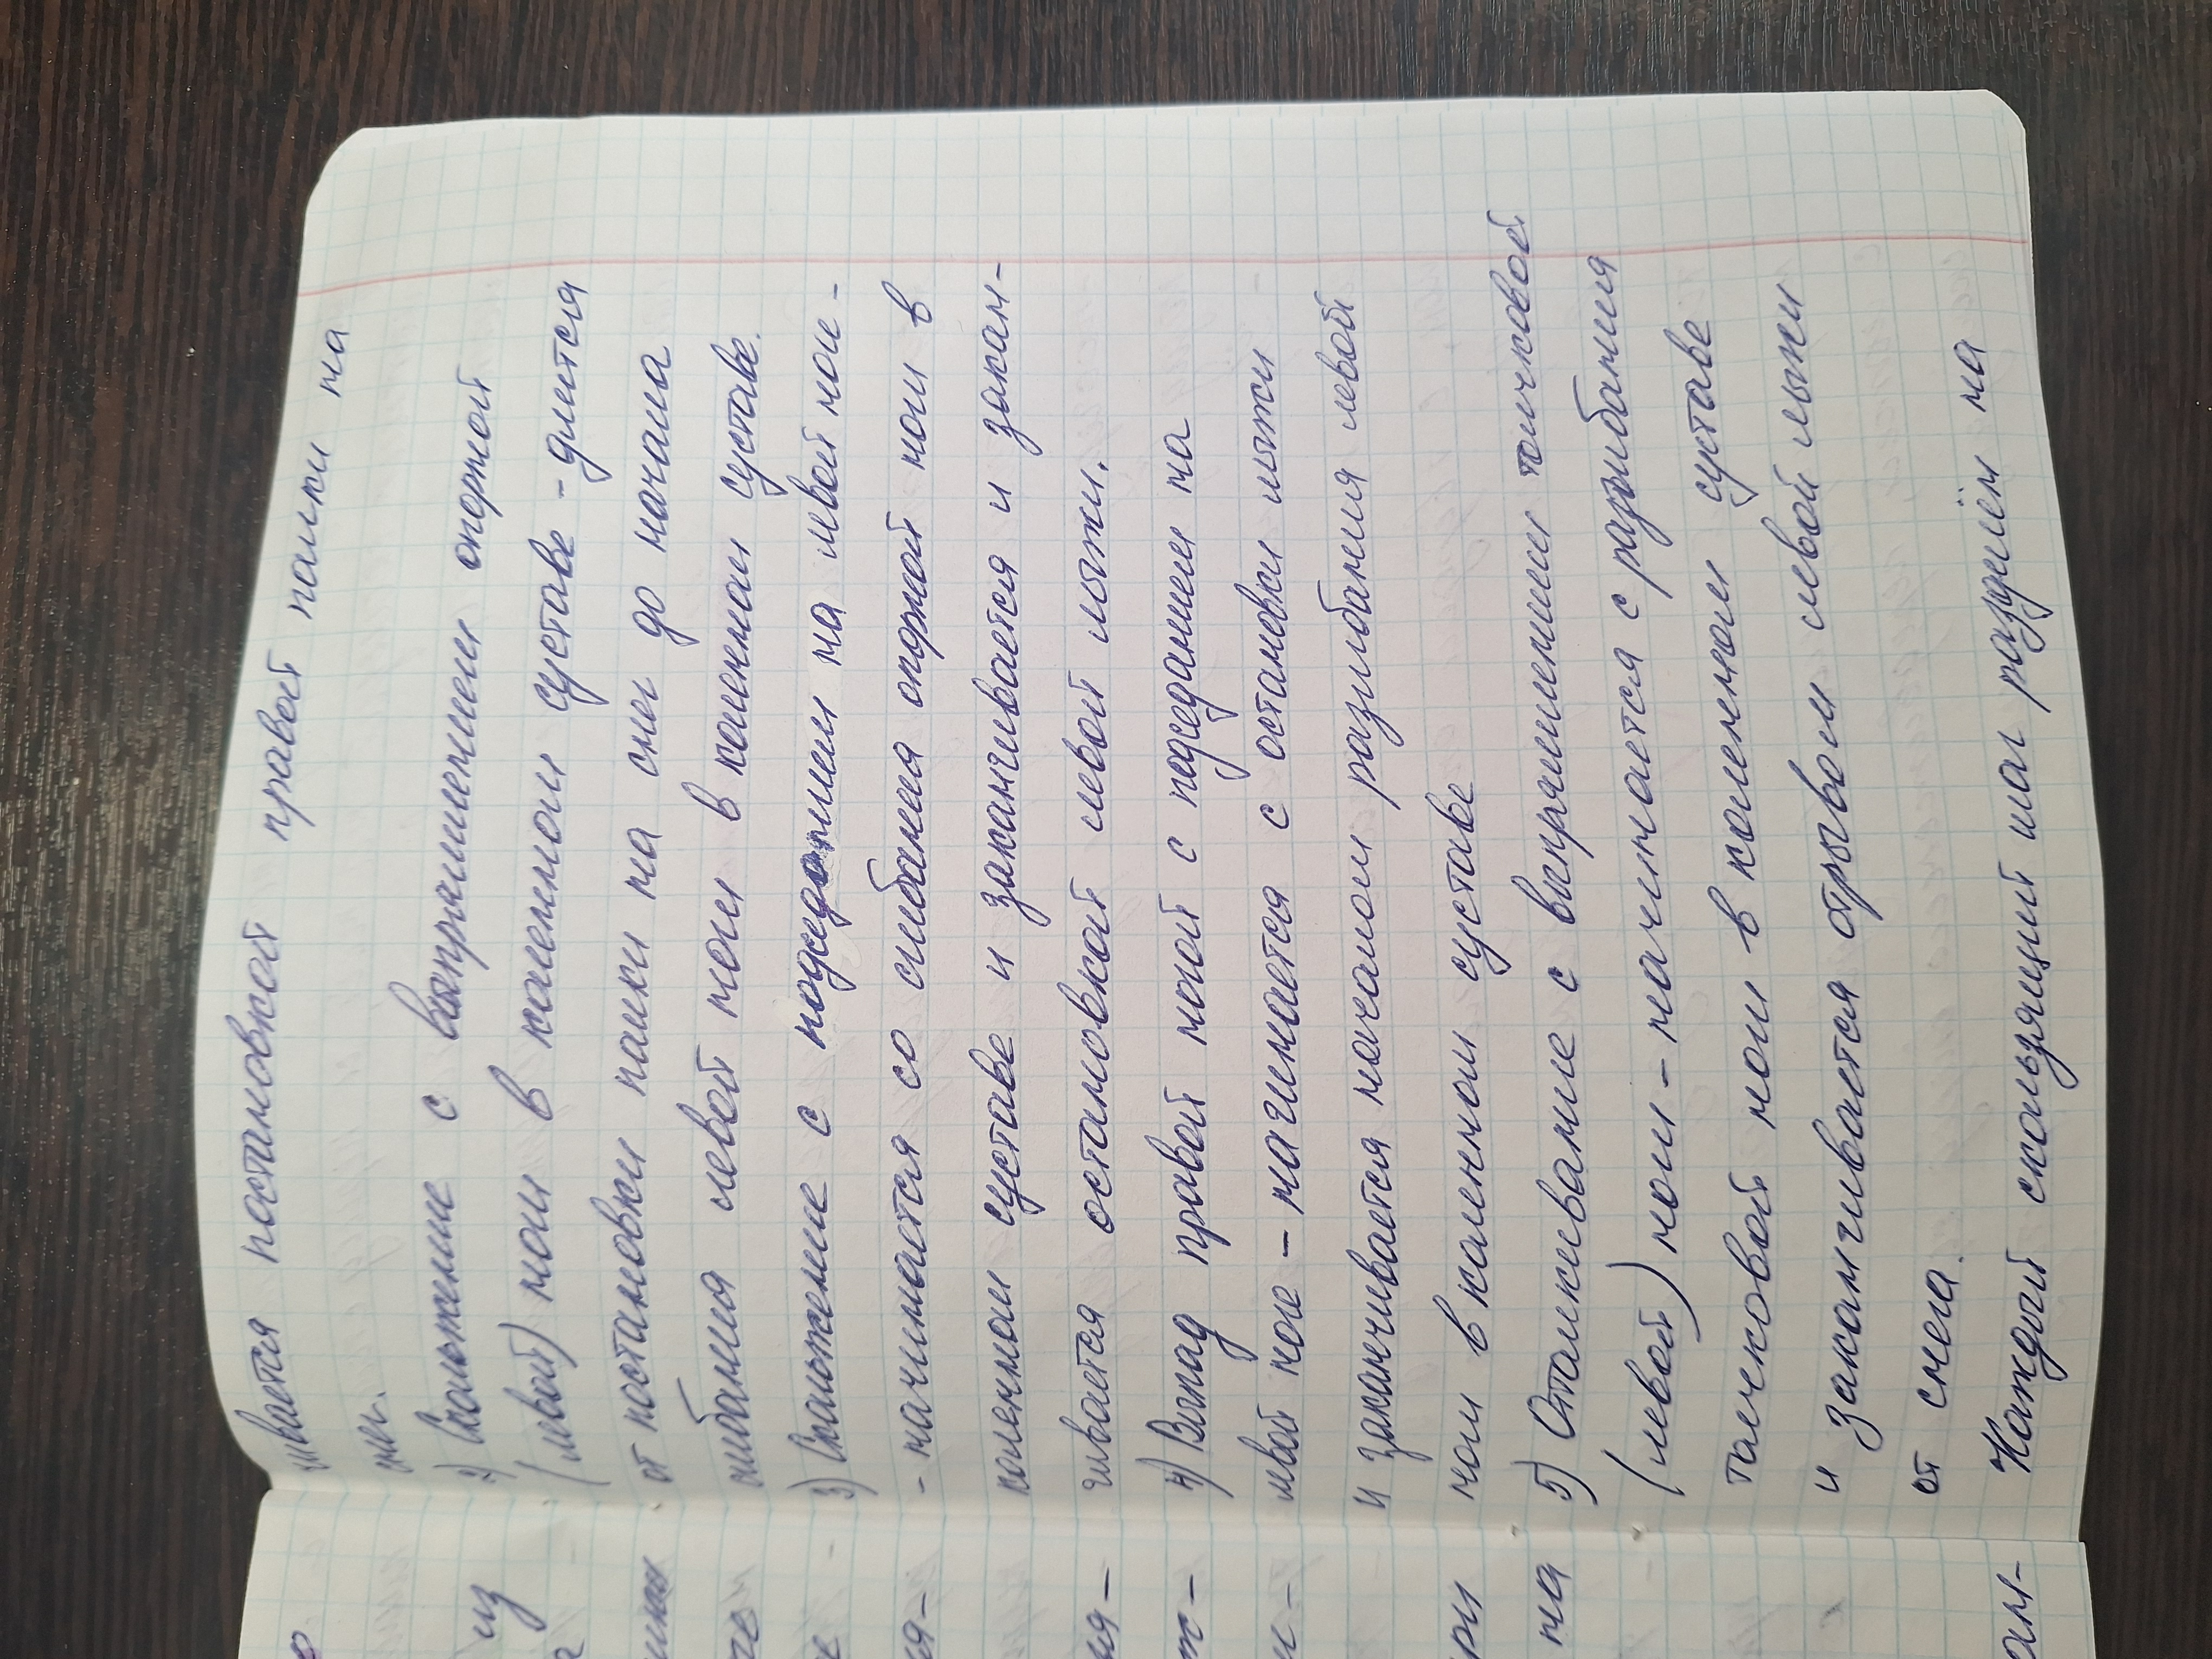 ивается постановкой правой палки на
снег.
2) Скольжение с выпрямлением опорной
(левой) ноги в коленном суставе - длится
от постановки палки на снег до начала
сгибания левой ноги в коленном суставе.
3) Скольжение с подседанием на левой ноге -
- начинается со сгибания опорной ноги в
коленном суставе и заканчивается и закан-
чивается остановкой левой лыжи.
4) Выпад правой ногой с подседанием на
левой ноге - начинается с остановки лыжи
и заканчивается началом разгибания левой
ноги в коленном суставе
5) Отталкивание с выпрямлением толчковой
(левой) ноги - начинается с разгибания
толчковой ноги в коленном суставе
и заканчивается отрывом левой лыжи
от снега.
Каждый скользящий шаг разделём на